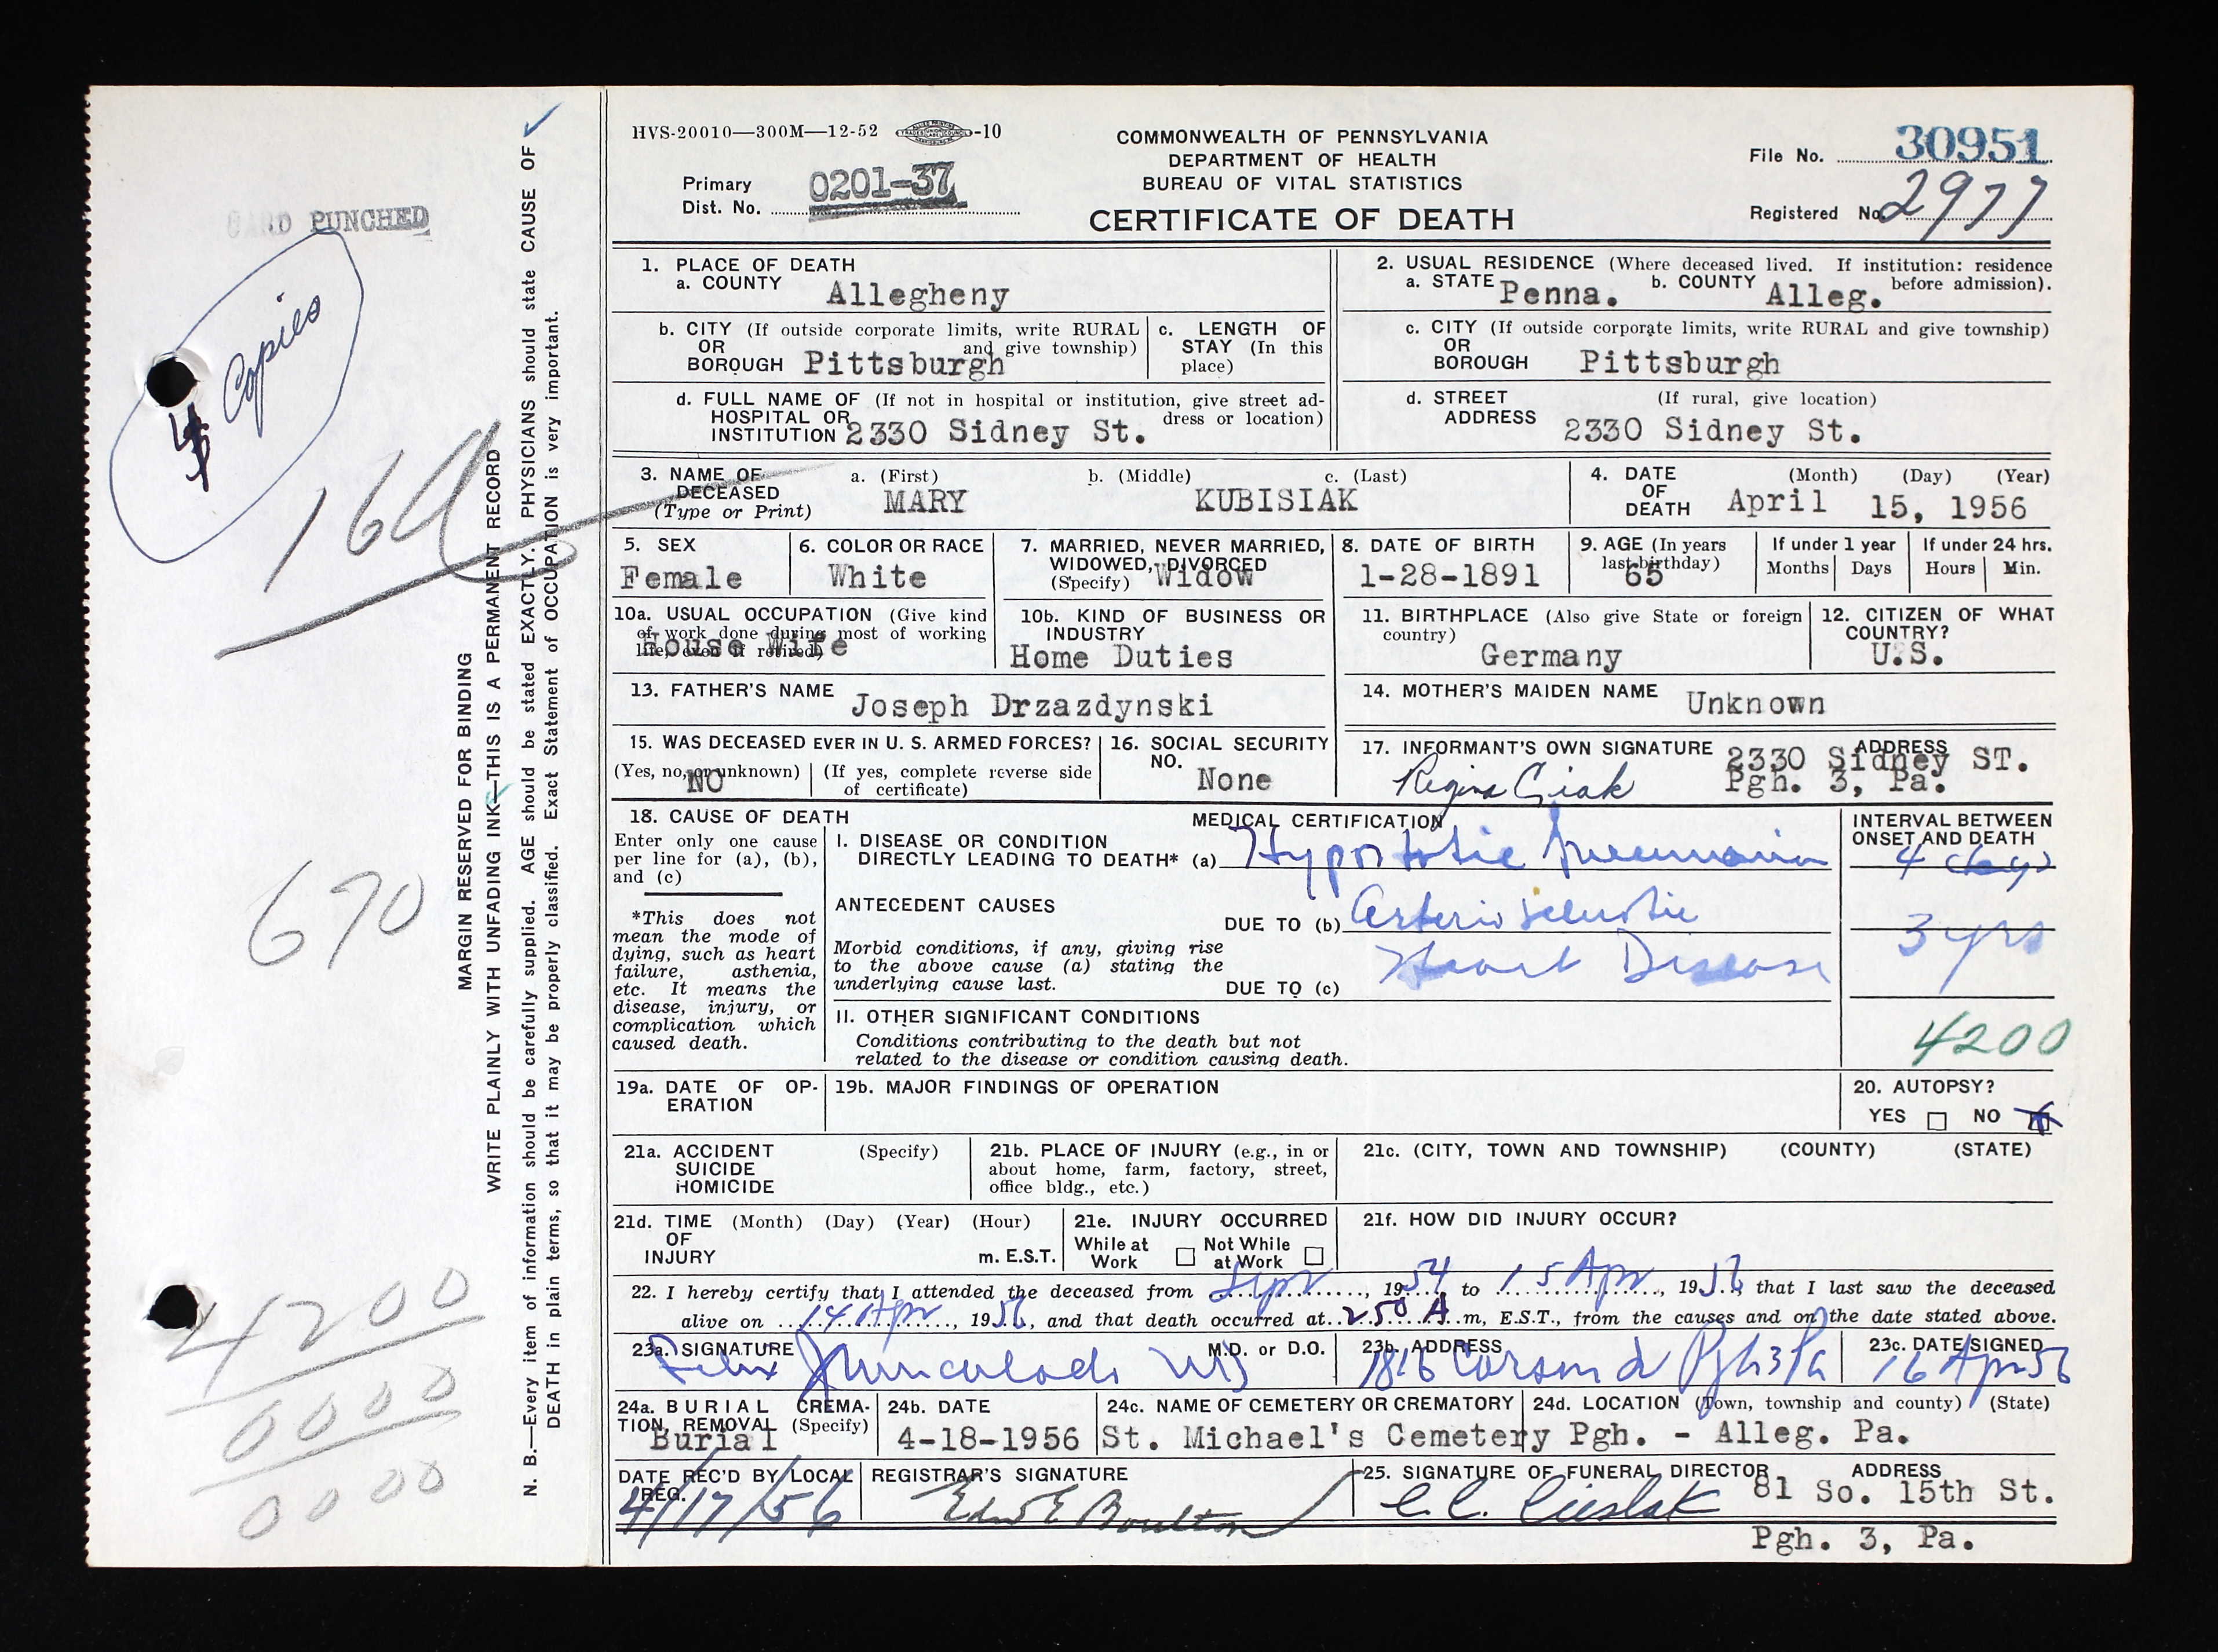 HVS-20010—300M—12-52 -10
COMMONWEALTH OF PENNSYLVANIA
DEPARTMENT OF HEALTH
BUREAU OF VITAL STATISTICS
CERTIFICATE OF DEATH
Primary Dist. No. 0201-37
File No. 30951
Registered No. 2977
CARD PUNCHED
Copies
670
4200
0000
0000
MARGIN RESERVED FOR BINDING
WRITE PLAINLY WITH UNFADING INK—THIS IS A PERMANENT RECORD
N. B.—Every item of information should be carefully supplied. AGE should be stated EXACTLY. PHYSICIANS should state CAUSE OF
DEATH in plain terms, so that it may be properly classified. Exact Statement of OCCUPATION is very important.
1. PLACE OF DEATH
a. COUNTY Allegheny
2. USUAL RESIDENCE (Where deceased lived. If institution: residence before admission).
a. STATE Penna. b. COUNTY Alleg.
b. CITY (If outside corporate limits, write RURAL and give township)
OR
BOROUGH Pittsburgh
c. LENGTH OF STAY (In this place)
c. CITY (If outside corporate limits, write RURAL and give township)
OR
BOROUGH Pittsburgh
d. FULL NAME OF (If not in hospital or institution, give street address or location)
HOSPITAL OR
INSTITUTION 2330 Sidney St.
d. STREET (If rural, give location)
ADDRESS 2330 Sidney St.
3. NAME OF DECEASED (Type or Print)
a. (First) b. (Middle) c. (Last)
MARY KUBISIAK
4. DATE OF DEATH (Month) (Day) (Year)
April 15, 1956
5. SEX
Female
6. COLOR OR RACE
White
7. MARRIED, NEVER MARRIED, WIDOWED, DIVORCED (Specify)
Widow
8. DATE OF BIRTH
1-28-1891
9. AGE (In years last birthday)
65
If under 1 year
Months Days
If under 24 hrs.
Hours Min.
10a. USUAL OCCUPATION (Give kind of work done during most of working life, even if retired)
House Wife
10b. KIND OF BUSINESS OR INDUSTRY
Home Duties
11. BIRTHPLACE (Also give State or foreign country)
Germany
12. CITIZEN OF WHAT COUNTRY?
U.S.
13. FATHER'S NAME Joseph Drzazdynski
14. MOTHER'S MAIDEN NAME Unknown
15. WAS DECEASED EVER IN U. S. ARMED FORCES?
(Yes, no, or unknown) (If yes, complete reverse side of certificate)
NO
16. SOCIAL SECURITY NO.
None
17. INFORMANT'S OWN SIGNATURE ADDRESS
Regina Ciak 2330 Sidney ST.
Pgh. 3, Pa.
18. CAUSE OF DEATH
Enter only one cause per line for (a), (b), and (c)
*This does not mean the mode of dying, such as heart failure, asthenia, etc. It means the disease, injury, or complication which caused death.
MEDICAL CERTIFICATION
INTERVAL BETWEEN ONSET AND DEATH
I. DISEASE OR CONDITION
DIRECTLY LEADING TO DEATH* (a) Hypostatic Pneumonia 4 days
ANTECEDENT CAUSES
DUE TO (b) Arteriosclerotic 3 yrs
Morbid conditions, if any, giving rise to the above cause (a) stating the underlying cause last.
Heart Disease
DUE TO (c)
II. OTHER SIGNIFICANT CONDITIONS
Conditions contributing to the death but not related to the disease or condition causing death.
4200
19a. DATE OF OPERATION
19b. MAJOR FINDINGS OF OPERATION
20. AUTOPSY?
YES NO
21a. ACCIDENT SUICIDE HOMICIDE (Specify)
21b. PLACE OF INJURY (e.g., in or about home, farm, factory, street, office bldg., etc.)
21c. (CITY, TOWN AND TOWNSHIP) (COUNTY) (STATE)
21d. TIME OF INJURY (Month) (Day) (Year) (Hour) m. E.S.T.
21e. INJURY OCCURRED
While at Work Not While at Work
21f. HOW DID INJURY OCCUR?
22. I hereby certify that I attended the deceased from Sept, 1954 to 15 Apr, 1956 that I last saw the deceased
alive on 14 Apr, 1956, and that death occurred at 250 A m, E.S.T., from the causes and on the date stated above.
23a. SIGNATURE M.D. or D.O.
Felix MD
23b. ADDRESS
1816 Carson St Pgh 3 Pa
23c. DATE SIGNED
16 Apr 56
24a. BURIAL CREMATION, REMOVAL (Specify)
Burial
24b. DATE
4-18-1956
24c. NAME OF CEMETERY OR CREMATORY
St. Michael's Cemetery
24d. LOCATION (Town, township and county) (State)
Pgh. - Alleg. Pa.
DATE REC'D BY LOCAL REG.
4/17/56
REGISTRAR'S SIGNATURE
Edw E Boulton
25. SIGNATURE OF FUNERAL DIRECTOR ADDRESS
C.C. Cieslak 81 So. 15th St.
Pgh. 3, Pa.